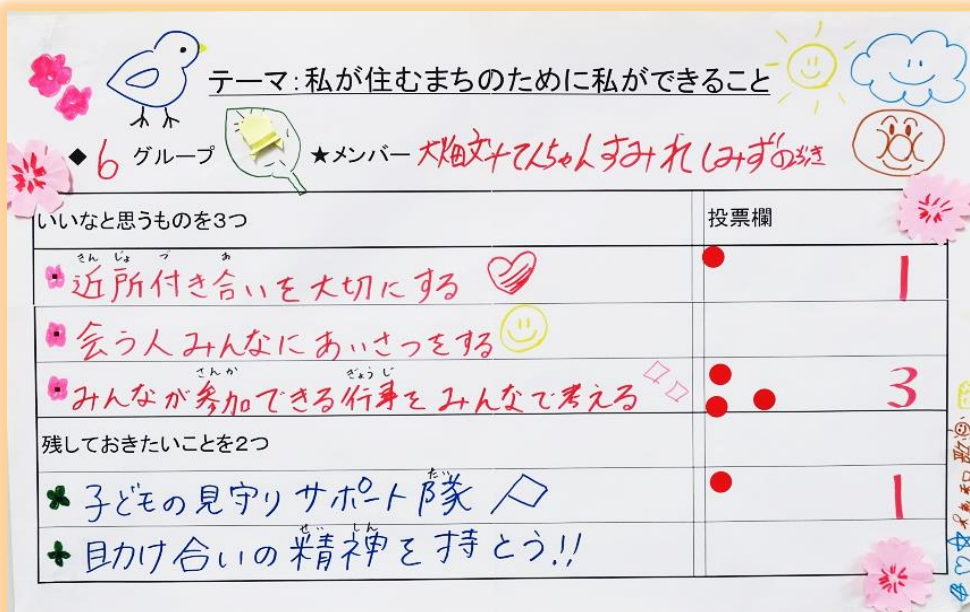 テーマ:私が住むまちのために私ができること
◆6 グループ ★メンバー 大畑文+てんちゃんすみれしみず
いいなと思うものを3つ 投票欄
近所付き合いを大切にする 1
きんじょづあ
会う人みんなにあいさつをする
みんなが参加できる行事をみんなで考える 3
さんかぎょうじ
残しておきたいことを2つ
子どもの見守りサポート隊 1
たい
助け合いの精神を持とう!!
せいしん